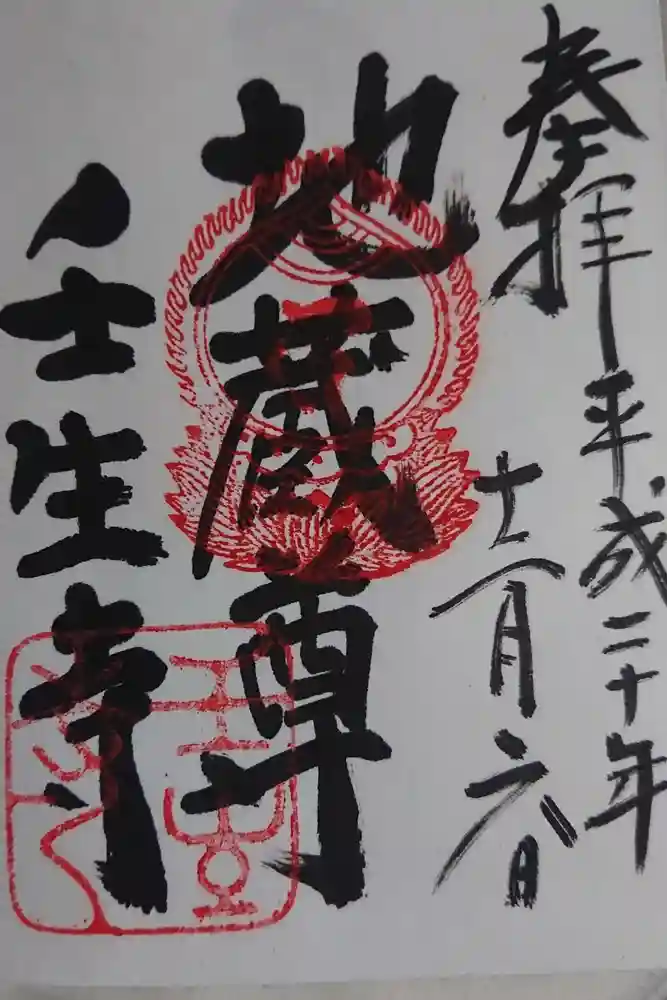 奉拝 平成二十年
十二月六日
地蔵尊
壬生寺